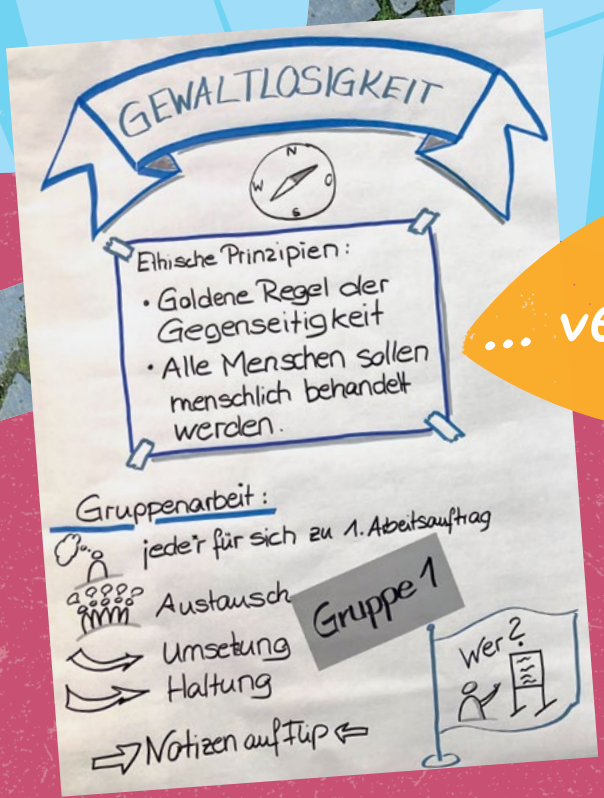 GEWALTLOSIGKEIT
N
W O
S
Ethische Prinzipien:
• Goldene Regel der
Gegenseitigkeit
• Alle Menschen sollen
menschlich behandelt
werden.
... ve
Gruppenarbeit:
jede*r für sich zu 1. Arbeitsauftrag
Austausch
Gruppe 1
Umsetzung
Haltung
Wer?
⇒ Notizen auf Flip ⇐